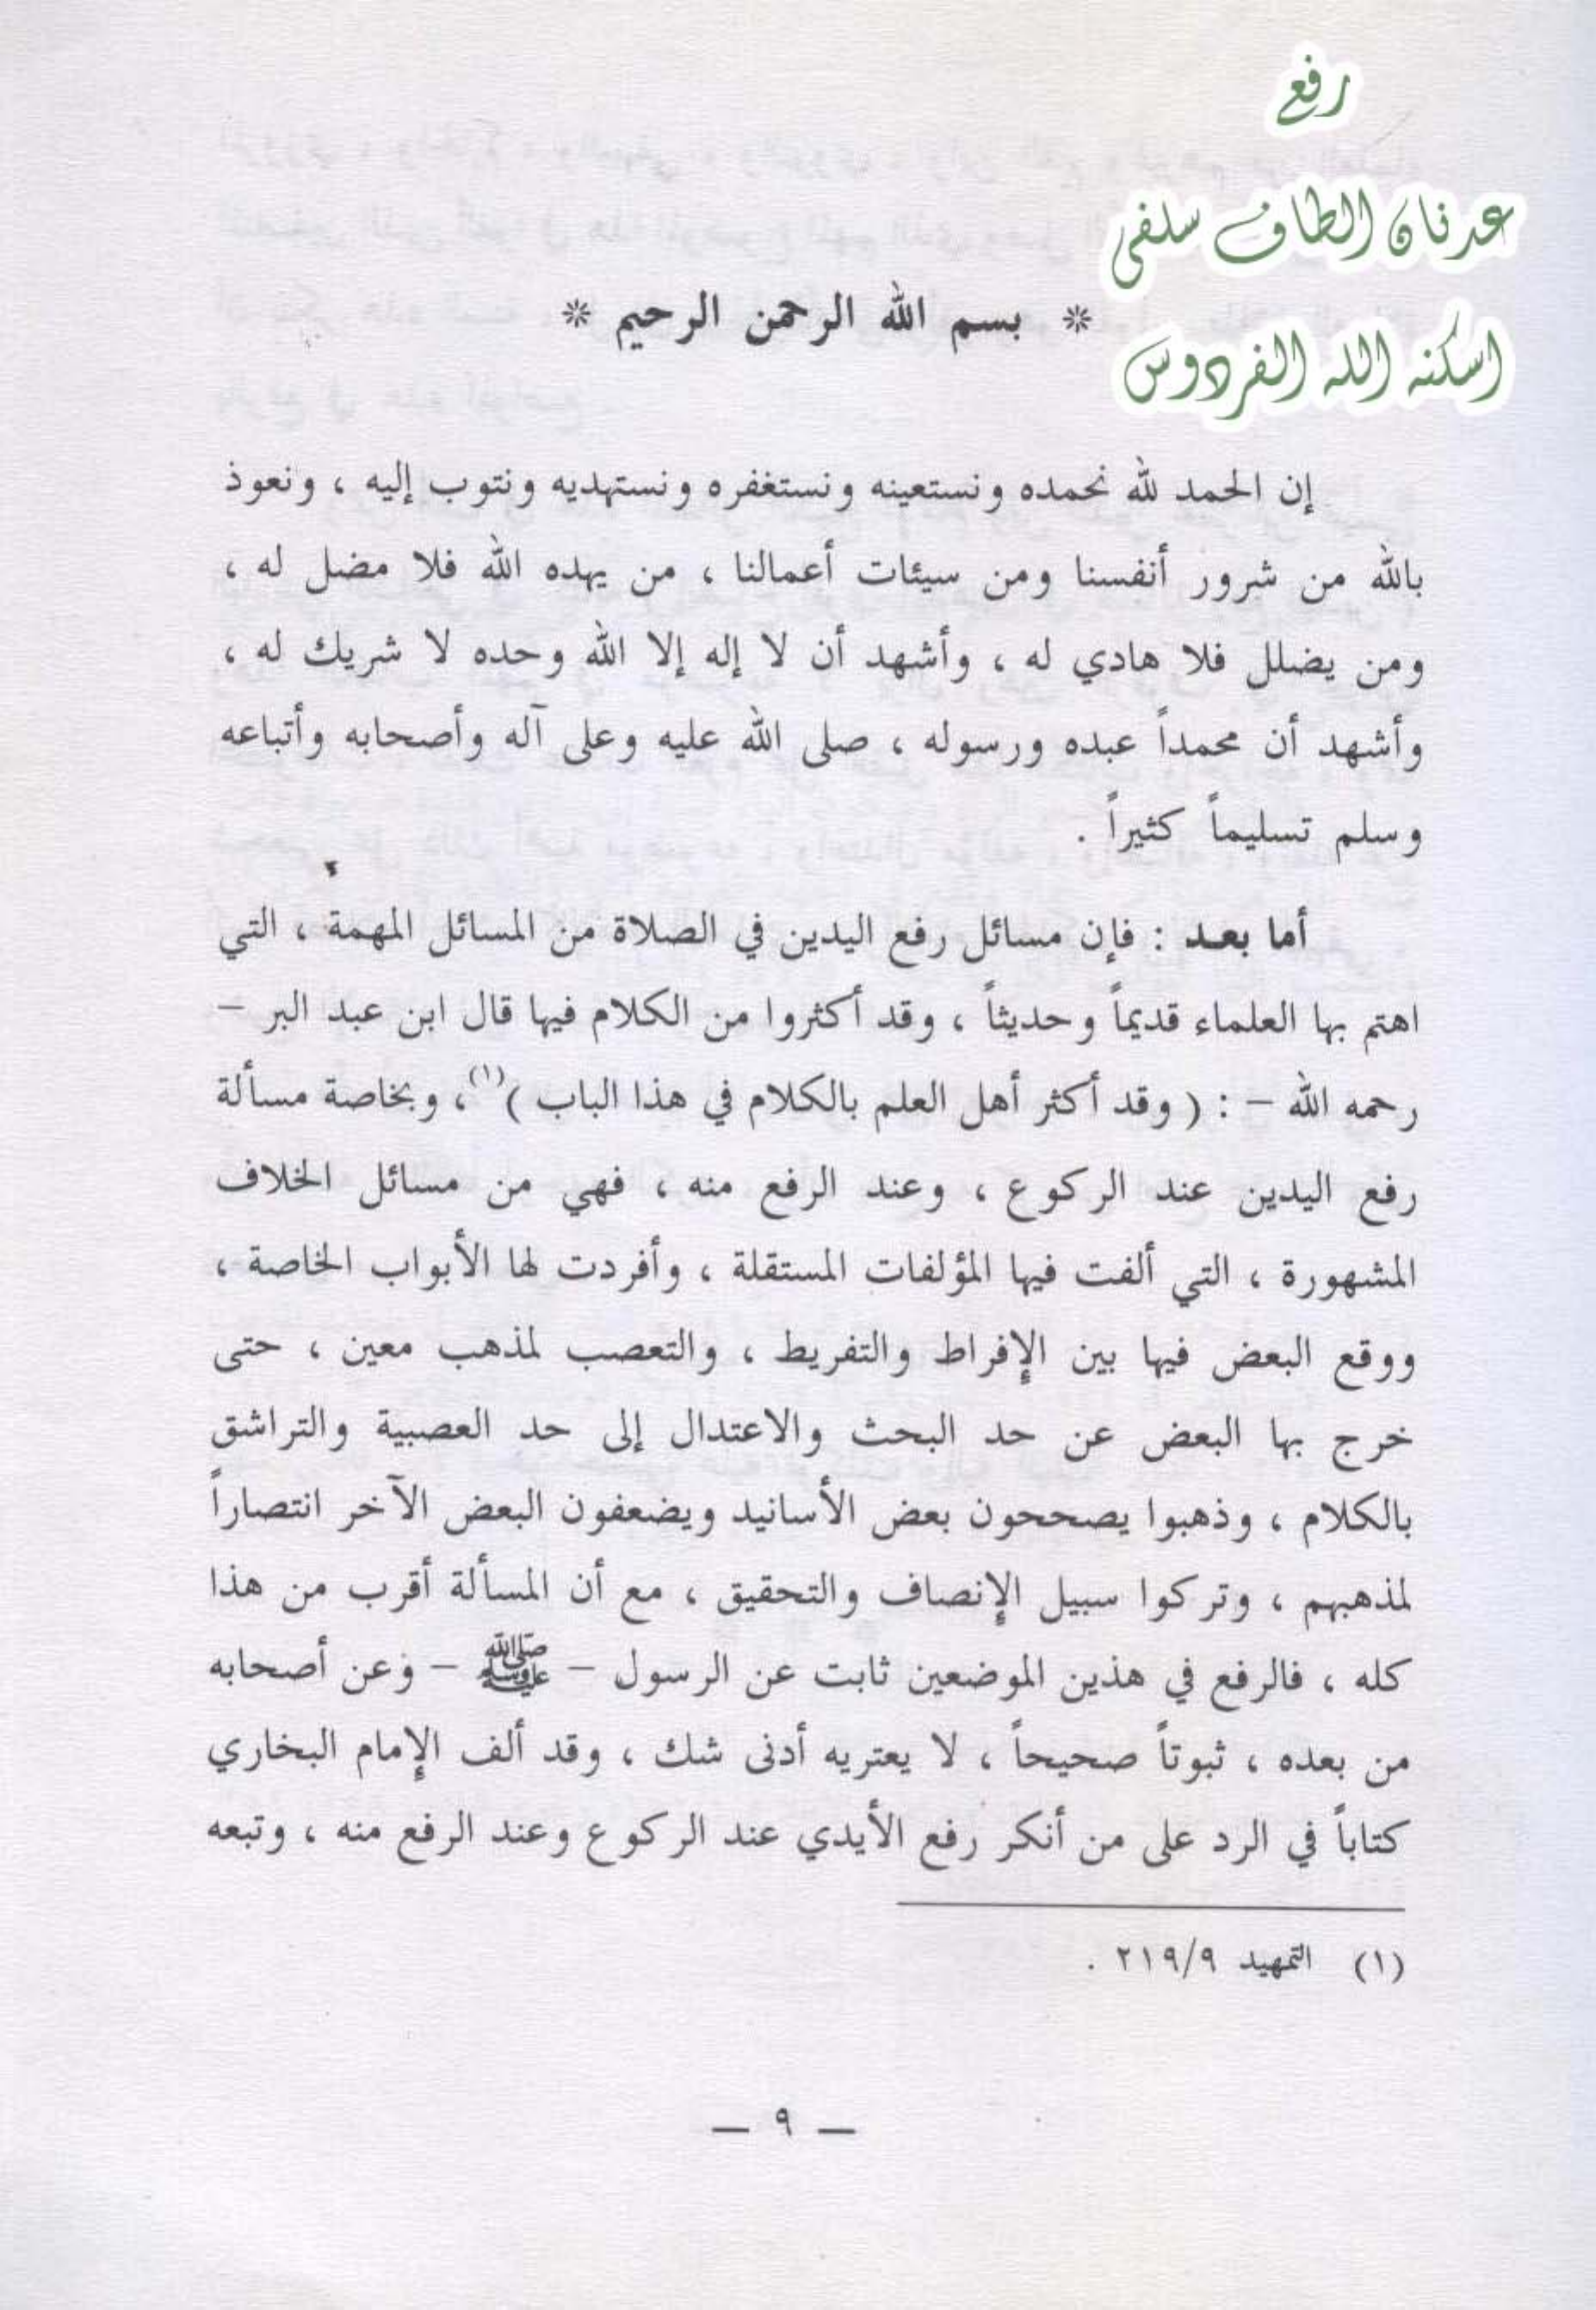 رفع
عدنان الطاف سلفي
اسكنه الله الفردوس
* بسم الله الرحمن الرحيم *
إن الحمد لله نحمده ونستعينه ونستغفره ونستهديه ونتوب إليه ، ونعوذ
بالله من شرور أنفسنا ومن سيئات أعمالنا ، من يهده الله فلا مضل له ،
ومن يضلل فلا هادي له ، وأشهد أن لا إله إلا الله وحده لا شريك له ،
وأشهد أن محمداً عبده ورسوله ، صلى الله عليه وعلى آله وأصحابه وأتباعه
وسلم تسليماً كثيراً .
أما بعد : فإن مسائل رفع اليدين في الصلاة من المسائل المهمة ، التي
اهتم بها العلماء قديماً وحديثاً ، وقد أكثروا من الكلام فيها قال ابن عبد البر –
رحمه الله – : ( وقد أكثر أهل العلم بالكلام في هذا الباب )(١)، وبخاصة مسألة
رفع اليدين عند الركوع ، وعند الرفع منه ، فهي من مسائل الخلاف
المشهورة ، التي ألفت فيها المؤلفات المستقلة ، وأفردت لها الأبواب الخاصة ،
ووقع البعض فيها بين الإفراط والتفريط ، والتعصب لمذهب معين ، حتى
خرج بها البعض عن حد البحث والاعتدال إلى حد العصبية والتراشق
بالكلام ، وذهبوا يصححون بعض الأسانيد ويضعفون البعض الآخر انتصاراً
لمذهبهم ، وتركوا سبيل الإنصاف والتحقيق ، مع أن المسألة أقرب من هذا
كله ، فالرفع في هذين الموضعين ثابت عن الرسول – ﷺ – وعن أصحابه
من بعده ، ثبوتاً صحيحاً ، لا يعتريه أدنى شك ، وقد ألف الإمام البخاري
كتاباً في الرد على من أنكر رفع الأيدي عند الركوع وعند الرفع منه ، وتبعه
(١) التمهيد ٢١٩/٩ .
— ٩ —